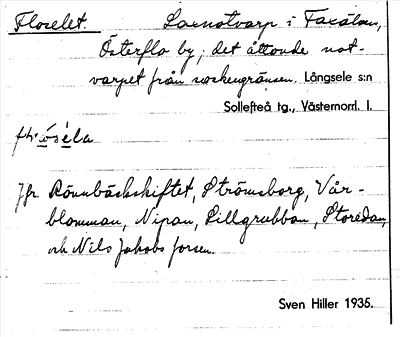 Floselet Laxnotvarp i Faxälven,
Österflo by; det åttonde not-
varpet från sockengränsen. Långsele s:n
Sollefteå tg., Västernorrl. l.
Jfr Rönnbäckskiftet, Strömsborg, Vår-
blomman, Nipan, Lillgrubban, Storedan,
och Nils Jakobs forsen.
Sven Hiller 1935.